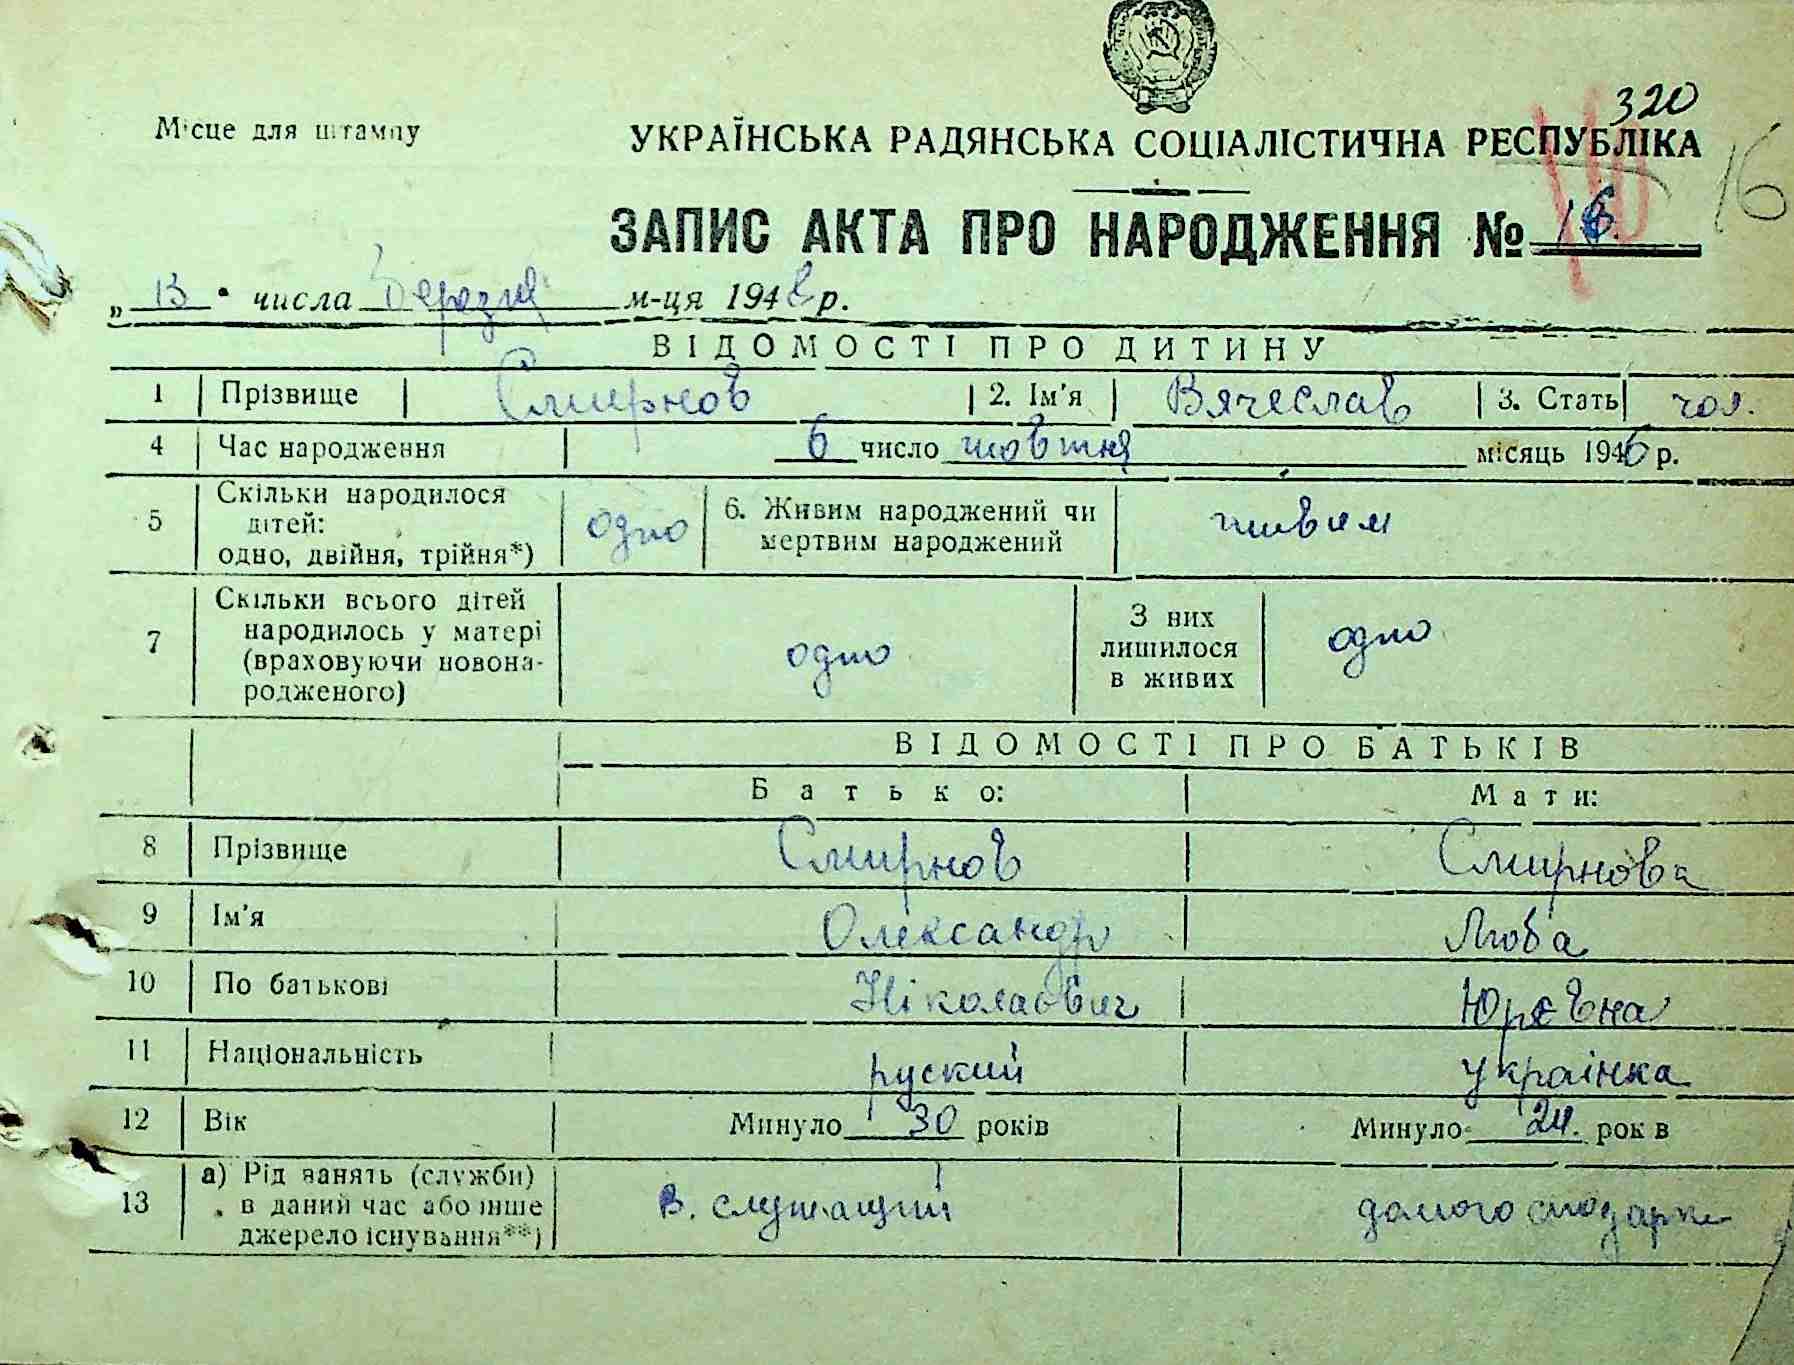 320
Місце для штампу
УКРАЇНСЬКА РАДЯНСЬКА СОЦІАЛІСТИЧНА РЕСПУБЛІКА
16
ЗАПИС АКТА ПРО НАРОДЖЕННЯ № 16
„ 13 " числа Березня м-ця 1948 р.
ВІДОМОСТІ ПРО ДИТИНУ
1 Прізвище Смирнов 2. Ім'я Вячеслав 3. Стать чол.
4 Час народження 6 число жовтня місяць 1946 р.
5 Скільки народилося дітей: одно, двійня, трійня*) одно 6. Живим народжений чи мертвим народжений живим
7 Скільки всього дітей народилось у матері (враховуючи новонародженого) одно З них лишилося в живих одно
ВІДОМОСТІ ПРО БАТЬКІВ
Батько: Мати:
8 Прізвище Смирнов Смирнова
9 Ім'я Олександр Люба
10 По батькові Ніколаєвич Юрєвна
11 Національність руский українка
12 Вік Минуло 30 років Минуло 24. років
13 а) Рід занять (служби) в даний час або інше джерело існування**) В. служащий домогосподарка